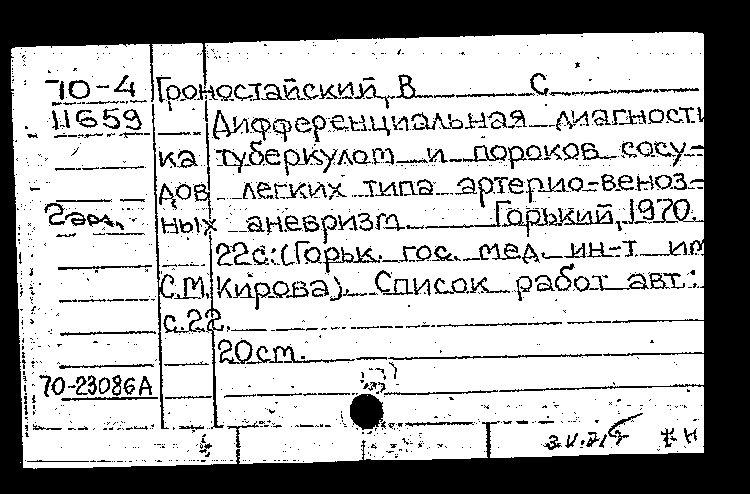 70-4 Гроностайский, В С
11659 Дифференциальная диагности
ка туберкулом и пороков сосу-
дов легких типа артерио-веноз-
2 экз. ных аневризм. Горький, 1970.
22с.: (Горьк. гос. мед. ин-т им
С.М. Кирова). Список работ авт.:
с.22.
20см.
70-23086А